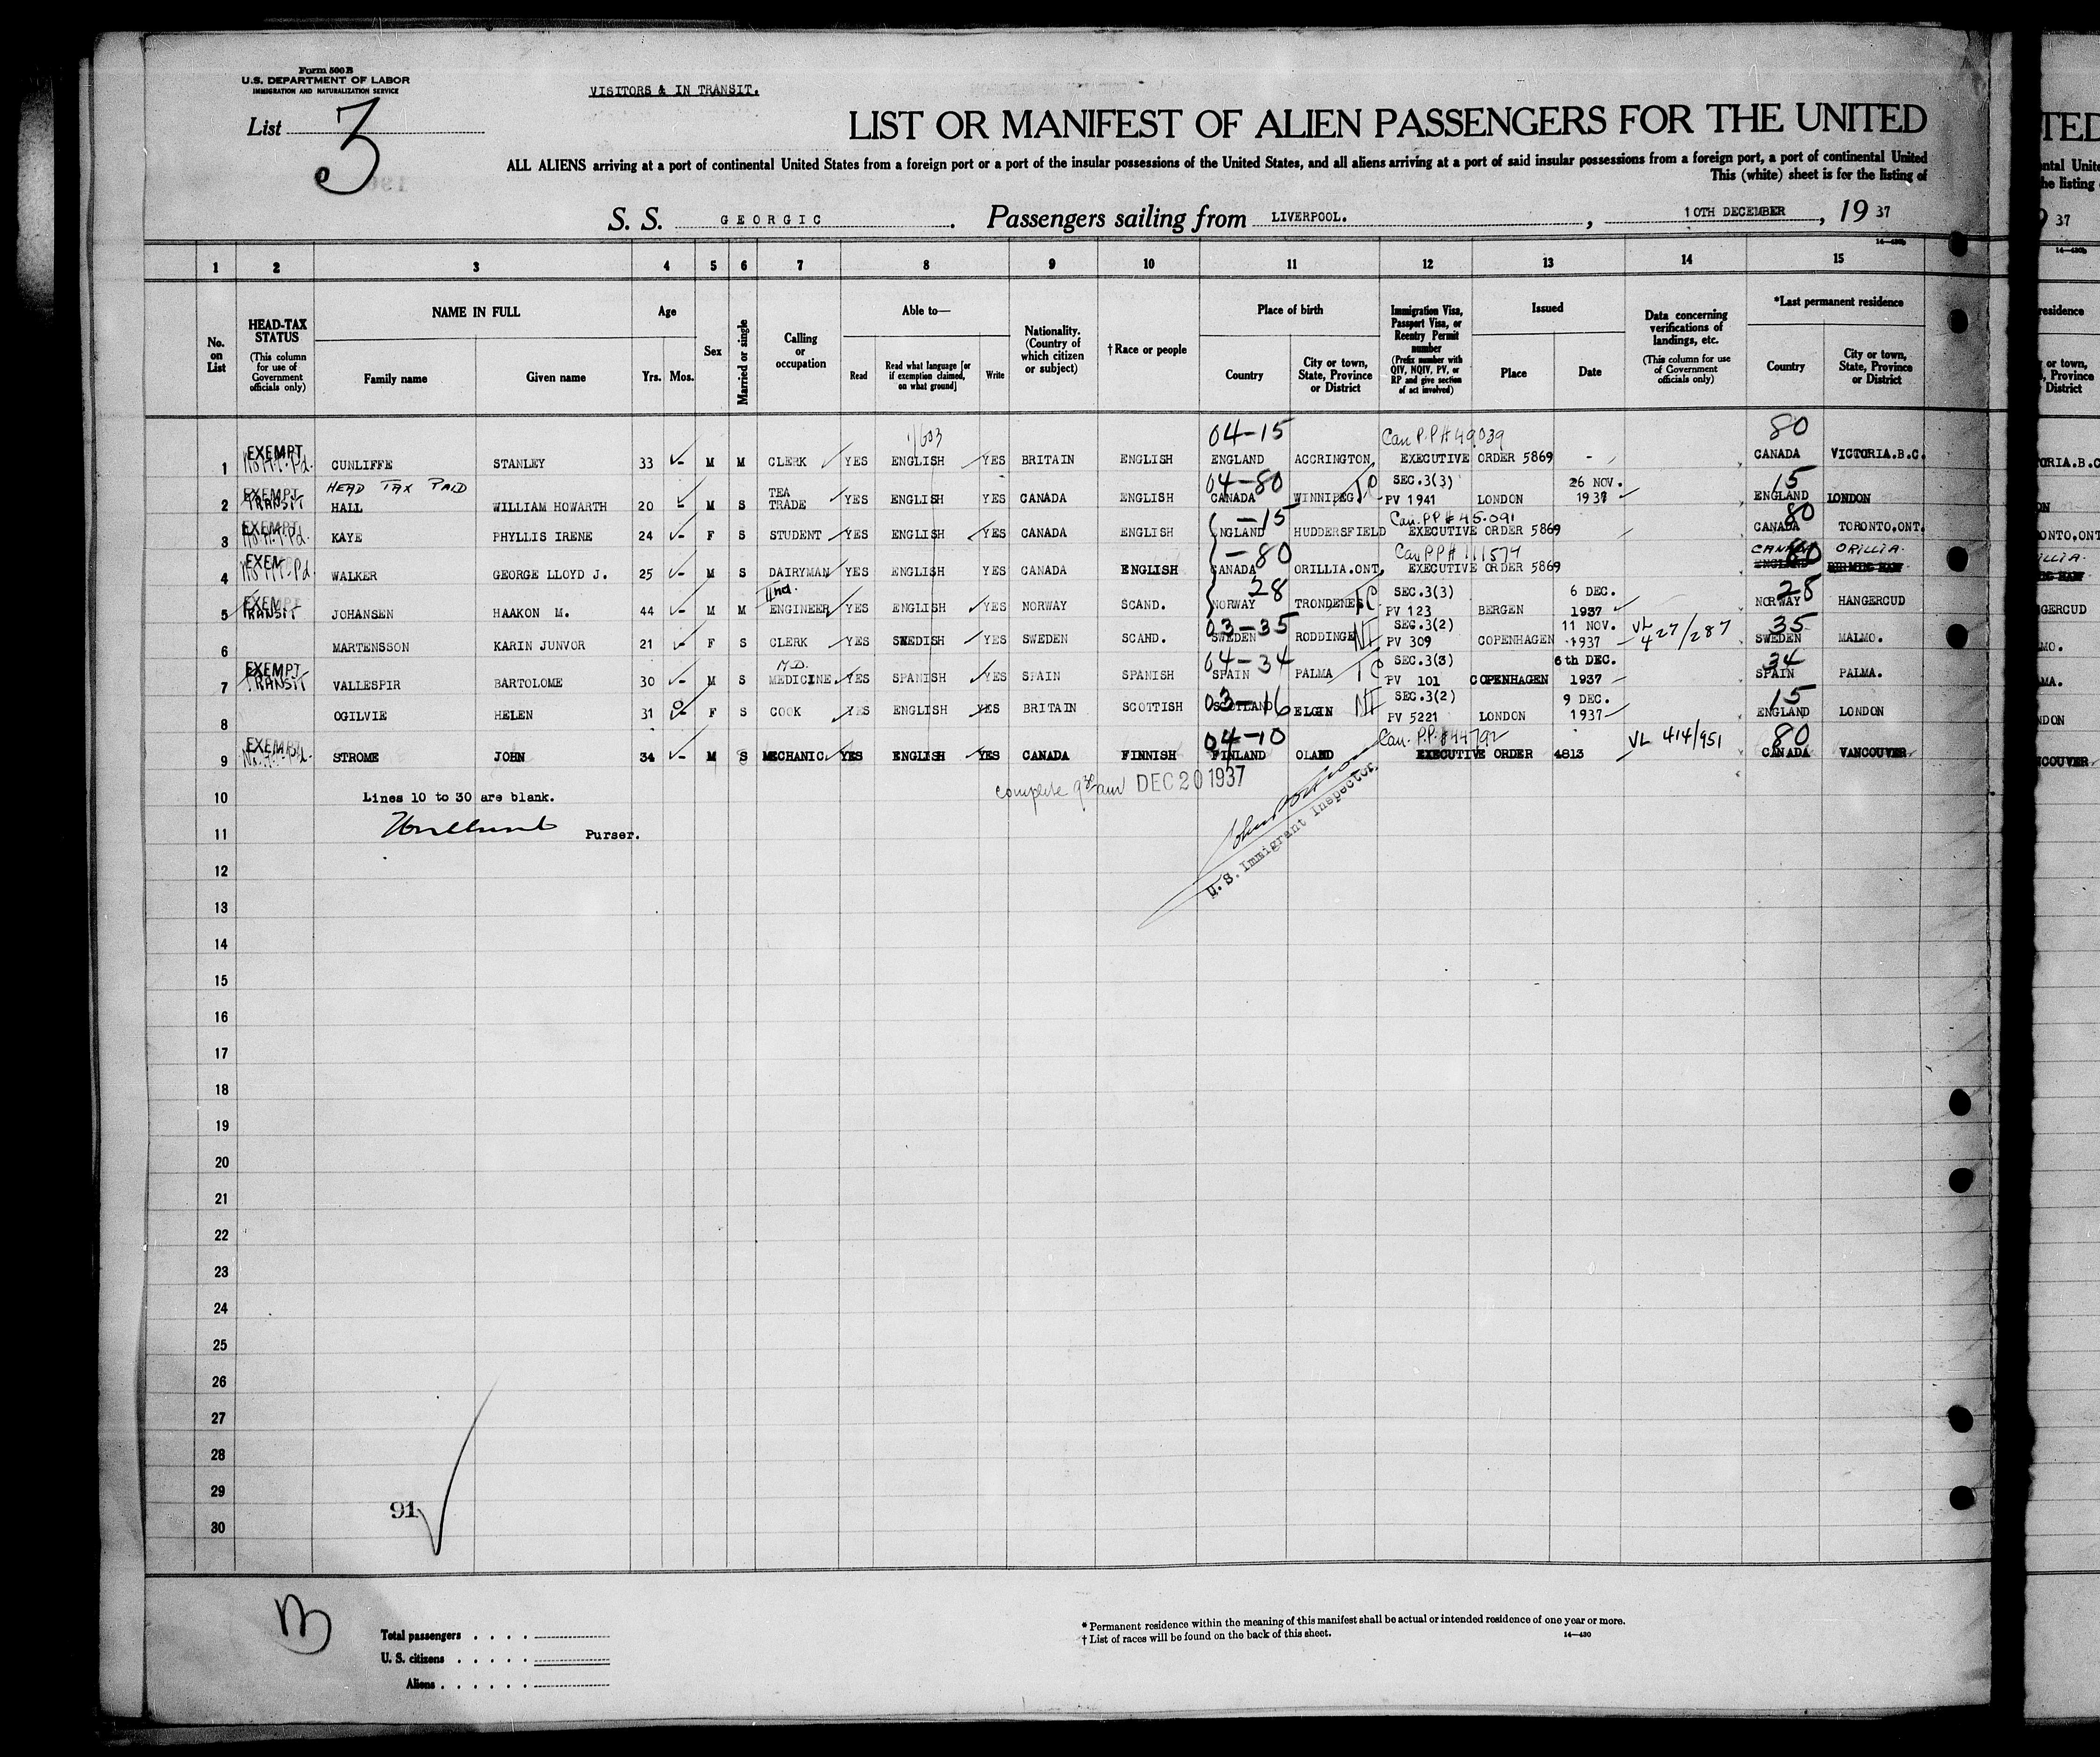 Form 500 B
U.S. DEPARTMENT OF LABOR
IMMIGRATION AND NATURALIZATION SERVICE
VISITORS & IN TRANSIT.
List 3
LIST OR MANIFEST OF ALIEN PASSENGERS FOR THE UNITED
ALL ALIENS arriving at a port of continental United States from a foreign port or a port of the insular possessions of the United States, and all aliens arriving at a port of said insular possessions from a foreign port, a port of continental United
This (white) sheet is for the listing of
S. S. GEORGIC. Passengers sailing from LIVERPOOL. , 10TH DECEMBER , 19 37
14—430b
1 2 3 4 5 6 7 8 9 10 11 12 13 14 15
No. on List
HEAD-TAX STATUS (This column for use of Government officials only)
NAME IN FULL Family name Given name
Age Yrs. Mos.
Sex
Married or single
Calling or occupation
Able to— Read Read what language [or if exemption claimed, on what ground] Write
Nationality. (Country of which citizen or subject)
†Race or people
Place of birth Country City or town, State, Province or District
Immigration Visa, Passport Visa, or Reentry Permit number (Prefix number with QIV, NQIV, PV, or RP and give section of act involved)
Issued Place Date
Data concerning verifications of landings, etc. (This column for use of Government officials only)
*Last permanent residence Country City or town, State, Province or District
1/603 04-15 Can P.P# 49039 80
1 EXEMPT CUNLIFFE STANLEY 33 - M M CLERK YES ENGLISH YES BRITAIN ENGLISH ENGLAND ACCRINGTON. EXECUTIVE ORDER 5869 - CANADA VICTORIA.B.C.
HEAD TAX PAID 04-80 SEC.3(3) 26 NOV. 15
2 EXEMPT TRANSIT HALL WILLIAM HOWARTH 20 - M S TEA TRADE YES ENGLISH YES CANADA ENGLISH CANADA WINNIPEG TC PV 1941 LONDON 1937 ENGLAND LONDON
-15 Can. PP# 45.091 80
3 EXEMPT KAYE PHYLLIS IRENE 24 - F S STUDENT YES ENGLISH YES CANADA ENGLISH ENGLAND HUDDERSFIELD EXECUTIVE ORDER 5869 CANADA TORONTO.ONT.
-80 Can PP# 111574 80 CANADA ORILLIA.
4 EXEMPT WALKER GEORGE LLOYD J. 25 - M S DAIRYMAN YES ENGLISH YES CANADA ENGLISH CANADA ORILLIA.ONT. EXECUTIVE ORDER 5869 ENGLAND
IInd. 28 SEC.3(3) 6 DEC. 28
5 EXEMPT TRANSIT JOHANSEN HAAKON M. 44 - M M ENGINEER YES ENGLISH YES NORWAY SCAND. NORWAY TRONDENES TC PV 123 BERGEN 1937 NORWAY HANGERCUD
03-35 SEC.3(2) 11 NOV. VL 427/287 35
6 MARTENSSON KARIN JUNVOR 21 - F S CLERK YES SWEDISH YES SWEDEN SCAND. SWEDEN RODDINGE NI PV 309 COPENHAGEN 1937 SWEDEN MALMO.
M.D. 04-34 SEC.3(3) 6th DEC. 34
7 EXEMPT TRANSIT VALLESPIR BARTOLOME 30 - M S MEDICINE. YES SPANISH YES SPAIN SPANISH SPAIN PALMA TC PV 101 COPENHAGEN 1937 SPAIN PALMA.
03-16 SEC.3(2) 9 DEC. 15
8 OGILVIE HELEN 31 - F S COOK YES ENGLISH YES BRITAIN SCOTTISH SCOTLAND ELGIN NI PV 5221 LONDON 1937 ENGLAND LONDON
04-10 Can. P.P.#44792 VL 414/951 80
9 EXEMPT STROME JOHN 34 - M S MECHANIC. YES ENGLISH YES CANADA FINNISH FINLAND OLAND EXECUTIVE ORDER 4813 CANADA VANCOUVER
complete 9 30 am DEC 20 1937
10 Lines 10 to 30 are blank.
11 Purser.
U. S. Immigrant Inspector
12
13
14
15
16
17
18
19
20
21
22
23
24
25
26
27
28
29
91
30
Total passengers
U. S. citizens
Aliens
* Permanent residence within the meaning of this manifest shall be actual or intended residence of one year or more.
† List of races will be found on the back of this sheet. 14—430